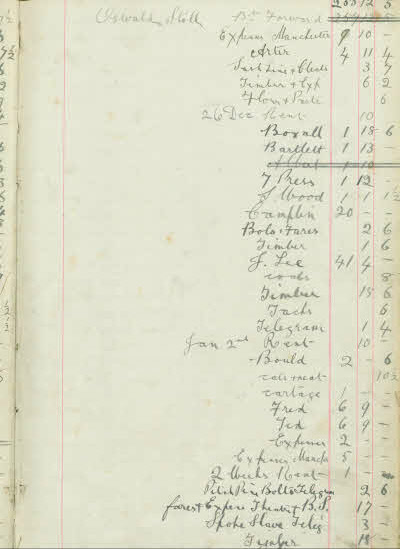 203 12 5
Oswald Stoll Bt Forward 259 12 5
Expenses Manchester 9 10 -
Arter 4 11 4
Sash Line & Cleats 3 7
Timber & Exp 6 2
Flour & Paste 6
26 Dec Rent 10
Boxall 1 18 6
Bartlett 1 13 -
Albert 1 10
7 Press 1 12 -
S Wood 1 1 1½
Camplin 20 - -
Bolo & Fares 2 6
Timber 1 6
J. Lee 41 4 -
coats 8
Timber 18 6
Tacks 6
Telegram 1 4
Jan 2nd Rent 10 -
Bould 2 - 6
cats meat 10½
cartage 1 - -
Fred 6 9 -
Ted 6 9 -
Expenses 2 - -
Expenses March 5 - -
2 Weeks Rent 1 -
Bolts Telegram 2 6
fares & Expens Theatre & B.S. 17 -
Spoke Shave Teleg 3 -
Timber 18 -